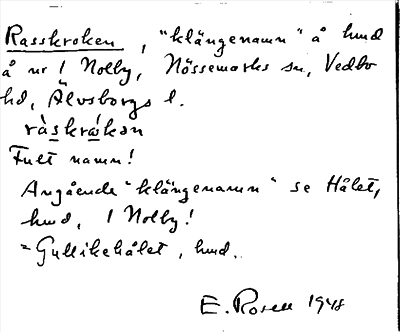 Rasskroken, "klängenamn" å hmd
å nr 1 Nolby, Nössemarks sn, Vedbo
hd, Älvsborgs l.
ràskrókən
Fult namn!
Angående "klängenamn" se Hålet,
hmd, 1 Nolby!
= Gullikehålet, hmd.
E. Rosell 1948